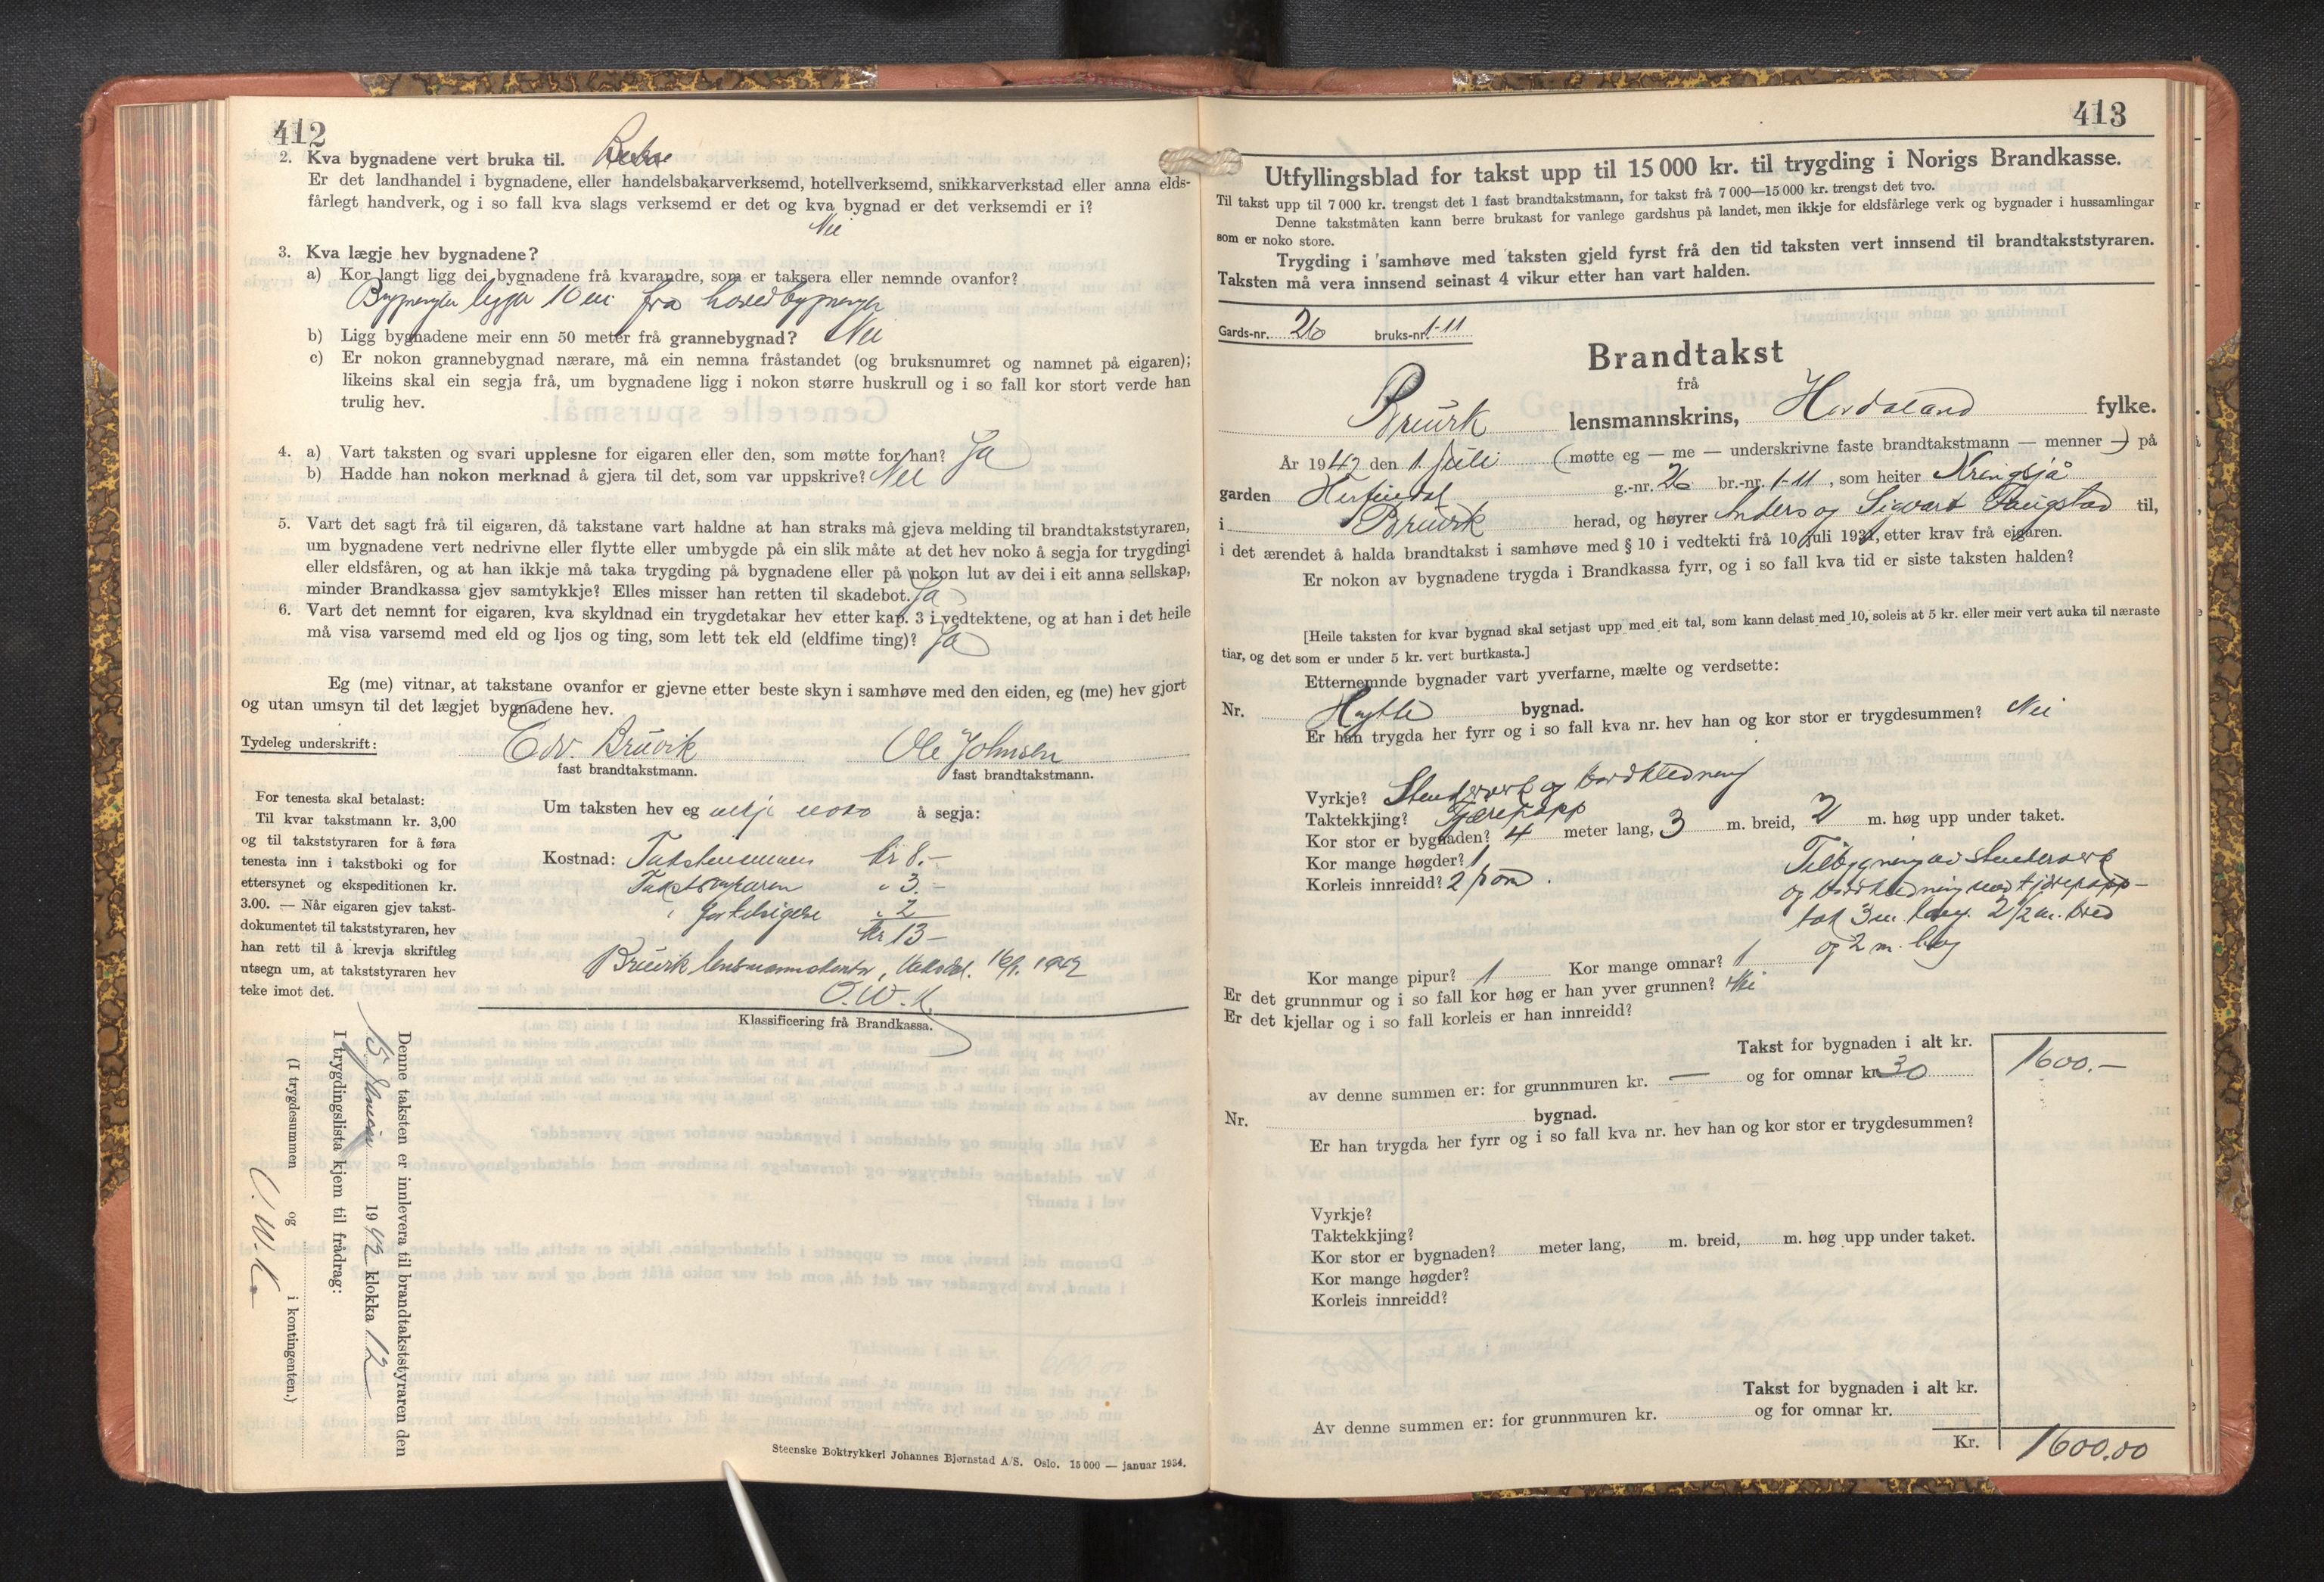 412
2. Kva bygnadene vert bruka til.
Er det landhandel i bygnadene, eller handelsbakarverksemd, hotellverksemd, snikkarverkstad eller anna elds-
fårlegt handverk, og i so fall kva slags verksemd er det og kva bygnad er det verksemdi er i?
Nei
3. Kva lægje hev bygnadene?
a) Kor langt ligg dei bygnadene frå kvarandre, som er taksera eller nemnde ovanfor?
ligger 10 m fra hovedbygningen
b) Ligg bygnadene meir enn 50 meter frå grannebygnad? Nei
c) Er nokon grannebygnad nærare, må ein nemna fråstandet (og bruksnumret og namnet på eigaren);
likeins skal ein segja frå, um bygnadene ligg i nokon større huskrull og i so fall kor stort verde han
trulig hev.
4. a) Vart taksten og svari upplesne for eigaren eller den, som møtte for han? Ja
b) Hadde han nokon merknad å gjera til det, som var uppskrive? Nei
5. Vart det sagt frå til eigaren, då takstane vart haldne at han straks må gjeva melding til brandtakststyraren,
um bygnadene vert nedrivne eller flytte eller umbygde på ein slik måte at det hev noko å segja for trygdingi
eller eldsfåren, og at han ikkje må taka trygding på bygnadene eller på nokon lut av dei i eit anna sellskap,
minder Brandkassa gjev samtykkje? Elles misser han retten til skadebot. Ja
6. Vart det nemnt for eigaren, kva skyldnad ein trygdetakar hev etter kap. 3 i vedtektene, og at han i det heile
må visa varsemd med eld og ljos og ting, som lett tek eld (eldfime ting)? Ja
Eg (me) vitnar, at takstane ovanfor er gjevne etter beste skyn i samhøve med den eiden, eg (me) hev gjort
og utan umsyn til det lægjet bygnadene hev.
Tydeleg underskrift: Edv. Bruvik Ole Johnsen
fast brandtakstmann. fast brandtakstmann.
For tenesta skal betalast:
Til kvar takstmann kr. 3,00
og til takststyraren for å føra
tenesta inn i takstboki og for
ettersynet og ekspeditionen kr.
3.00. — Når eigaren gjev takst-
dokumentet til takststyraren, hev
han rett til å krevja skriftleg
utsegn um, at takststyraren hev
teke imot det.
Um taksten hev eg ikkje noko å segja:
Kostnad: Takstmennene kr 8.-
Takststyraren " 3.-
" 2
kr 13-
Bruvik lensmannskontor, 1942
O.W.K
Klassificering frå Brandkassa.
Denne taksten er innlevera til brandtakststyraren den
15 1942 klokka 12
I trygdingslista kjem til frådrag:
(I trygdesummen og i kontingenten.)
O.W.K.
Steenske Boktrykkeri Johannes Bjørnstad A/S. Oslo. 15 000 — januar 1934.
413
Utfyllingsblad for takst upp til 15 000 kr. til trygding i Norigs Brandkasse.
Til takst upp til 7 000 kr. trengst det 1 fast brandtakstmann, for takst frå 7 000—15 000 kr. trengst det tvo.
Denne takstmåten kann berre brukast for vanlege gardshus på landet, men ikkje for eldsfårlege verk og bygnader i hussamlingar
som er noko store.
Trygding i samhøve med taksten gjeld fyrst frå den tid taksten vert innsend til brandtakststyraren.
Taksten må vera innsend seinast 4 vikur etter han vart halden.
Gards-nr. 26 bruks-nr. 1-11
Brandtakst
frå
Bruvik lensmannskrins, Hordaland fylke.
År 1942 den 1 juli (møtte eg — me — underskrivne faste brandtakstmann — menner —) på
garden Herfindal g.-nr. 26 br.-nr. 1-11, som heiter Kringsjå
i Bruvik herad, og høyrer Anders og Sigvart Langstad til,
i det ærendet å halda brandtakst i samhøve med § 10 i vedtekti frå 10 juli 1931, etter krav frå eigaren.
Er nokon av bygnadene trygda i Brandkassa fyrr, og i so fall kva tid er siste taksten halden?
[Heile taksten for kvar bygnad skal setjast upp med eit tal, som kann delast med 10, soleis at 5 kr. eller meir vert auka til næraste
tiar, og det som er under 5 kr. vert burtkasta.]
Etternemnde bygnader vart yverfarne, mælte og verdsette:
Nr. Hytte bygnad.
Er han trygda her fyrr og i so fall kva nr. hev han og kor stor er trygdesummen? Nei
Vyrkje? Stenderverk og bordkledning
Taktekkjing? Tjærepapp
Kor stor er bygnaden? 4 meter lang, 3 m. breid, 2 m. høg upp under taket.
Kor mange høgder? 1
Korleis innreidd? 2 rom.
Tilbygning av stenderverk
og bordkledning med tjærepapp-
tak 3 m. lang. 2 1/2 m. bred
og 2 m. høy
Kor mange pipur? 1 Kor mange omnar? 1
Er det grunnmur og i so fall kor høg er han yver grunnen? Nei
Er det kjellar og i so fall korleis er han innreidd?
Takst for bygnaden i alt kr. 1600.-
av denne summen er: for grunnmuren kr. — og for omnar kr. 30
Nr. bygnad.
Er han trygda her fyrr og i so fall kva nr. hev han og kor stor er trygdesummen?
Vyrkje?
Taktekkjing?
Kor stor er bygnaden? meter lang, m. breid, m. høg upp under taket.
Kor mange høgder?
Korleis innreidd?
Takst for bygnaden i alt kr.
Av denne summen er: for grunnmuren kr. og for omnar kr.
Kr. 1600.00